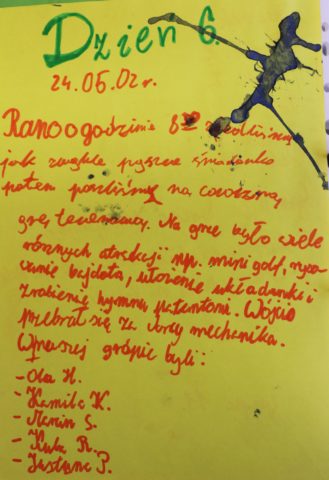 Dzień 6.
24.05.02r.
Rano o godzinie 8 zjedliśmy
jak zwykle pyszne śniadanko
potem poszliśmy na coroczną
grę terenową. Na grze było wiele
różnych atrakcji np. mini golf, ryso
wanie bejdota, ułożenie układanki i
zrobienie hymnu patentami. Wójcio
przebrał się za Vory mechanika.
W naszej grópie byli:
- Ola H.
- Kamila K.
- Marcin S.
- Kuba R.
- Justyna P.